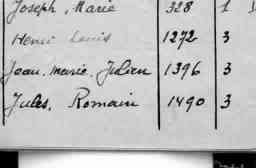 Joseph, Marie 328 1
Henri Louis 1272 3
Jean. Marie. Julien 1396 3
Jules, Romain 1490 3